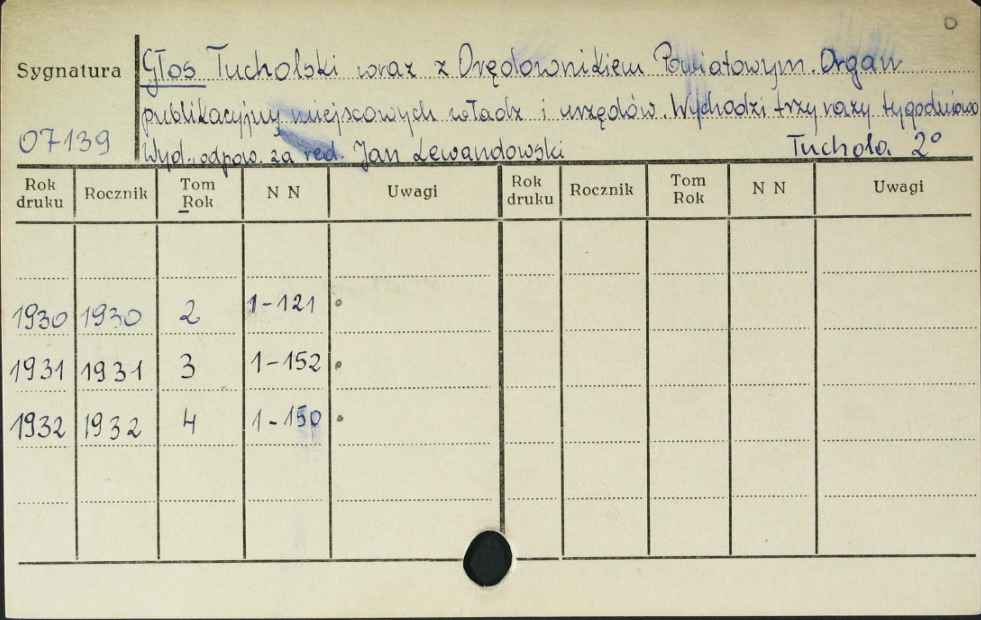 Sygnatura
07139
Głos Tucholski wraz z Orędownikiem Powiatowym. Organ
publikacyjny miejscowych władz i urzędów. Wychodzi trzy razy tygodniowo
Wyd., odpow. za red. Jan Lewandowski Tuchola 2°
Rok druku Rocznik Tom Rok N N Uwagi Rok druku Rocznik Tom Rok N N Uwagi
1930 1930 2 1-121
1931 1931 3 1-152
1932 1932 4 1-150